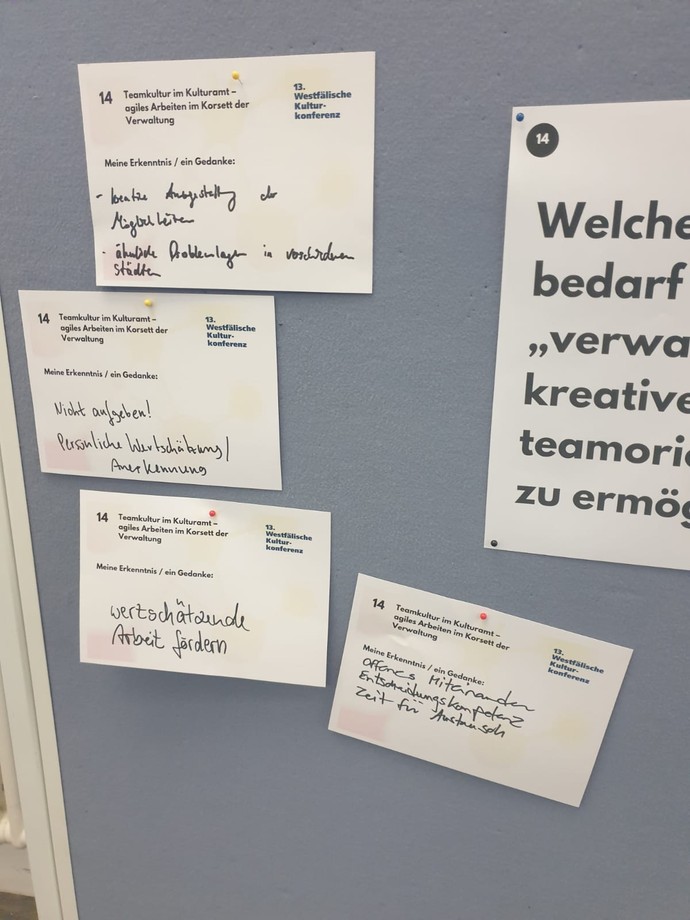 14 Teamkultur im Kulturamt –
agiles Arbeiten im Korsett der
Verwaltung
13.
Westfälische
Kultur-
konferenz
Meine Erkenntnis / ein Gedanke:
- kreative Ausgestaltung der
Möglichkeiten
- ähnliche Problemlagen in verschiedenen
Städten
14 Teamkultur im Kulturamt –
agiles Arbeiten im Korsett der
Verwaltung
13.
Westfälische
Kultur-
konferenz
Meine Erkenntnis / ein Gedanke:
Nicht aufgeben!
Persönliche Wertschätzung/
Anerkennung
14 Teamkultur im Kulturamt –
agiles Arbeiten im Korsett der
Verwaltung
13.
Westfälische
Kultur-
konferenz
Meine Erkenntnis / ein Gedanke:
wertschätzende
Arbeit fördern
14 Teamkultur im Kulturamt –
agiles Arbeiten im Korsett der
Verwaltung
13.
Westfälische
Kultur-
konferenz
Meine Erkenntnis / ein Gedanke:
Offenes Miteinander
Entscheidungskompetenz
Zeit für Austausch
14
Welche
bedarf
„verwa
kreative
teamorie
zu ermög